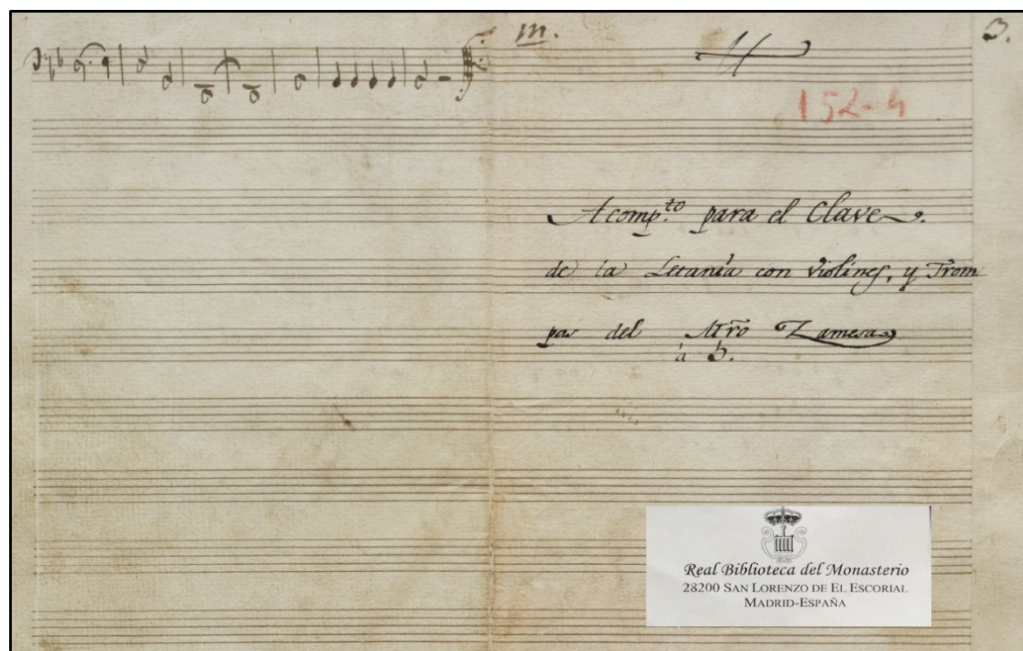 m.
3.
152-4
Acomp.to para el Clave.
de la Letanía con Violines, y Trom
pas del Mro Zamesa
a 5.
Real Biblioteca del Monasterio
28200 SAN LORENZO DE EL ESCORIAL
MADRID-ESPAÑA